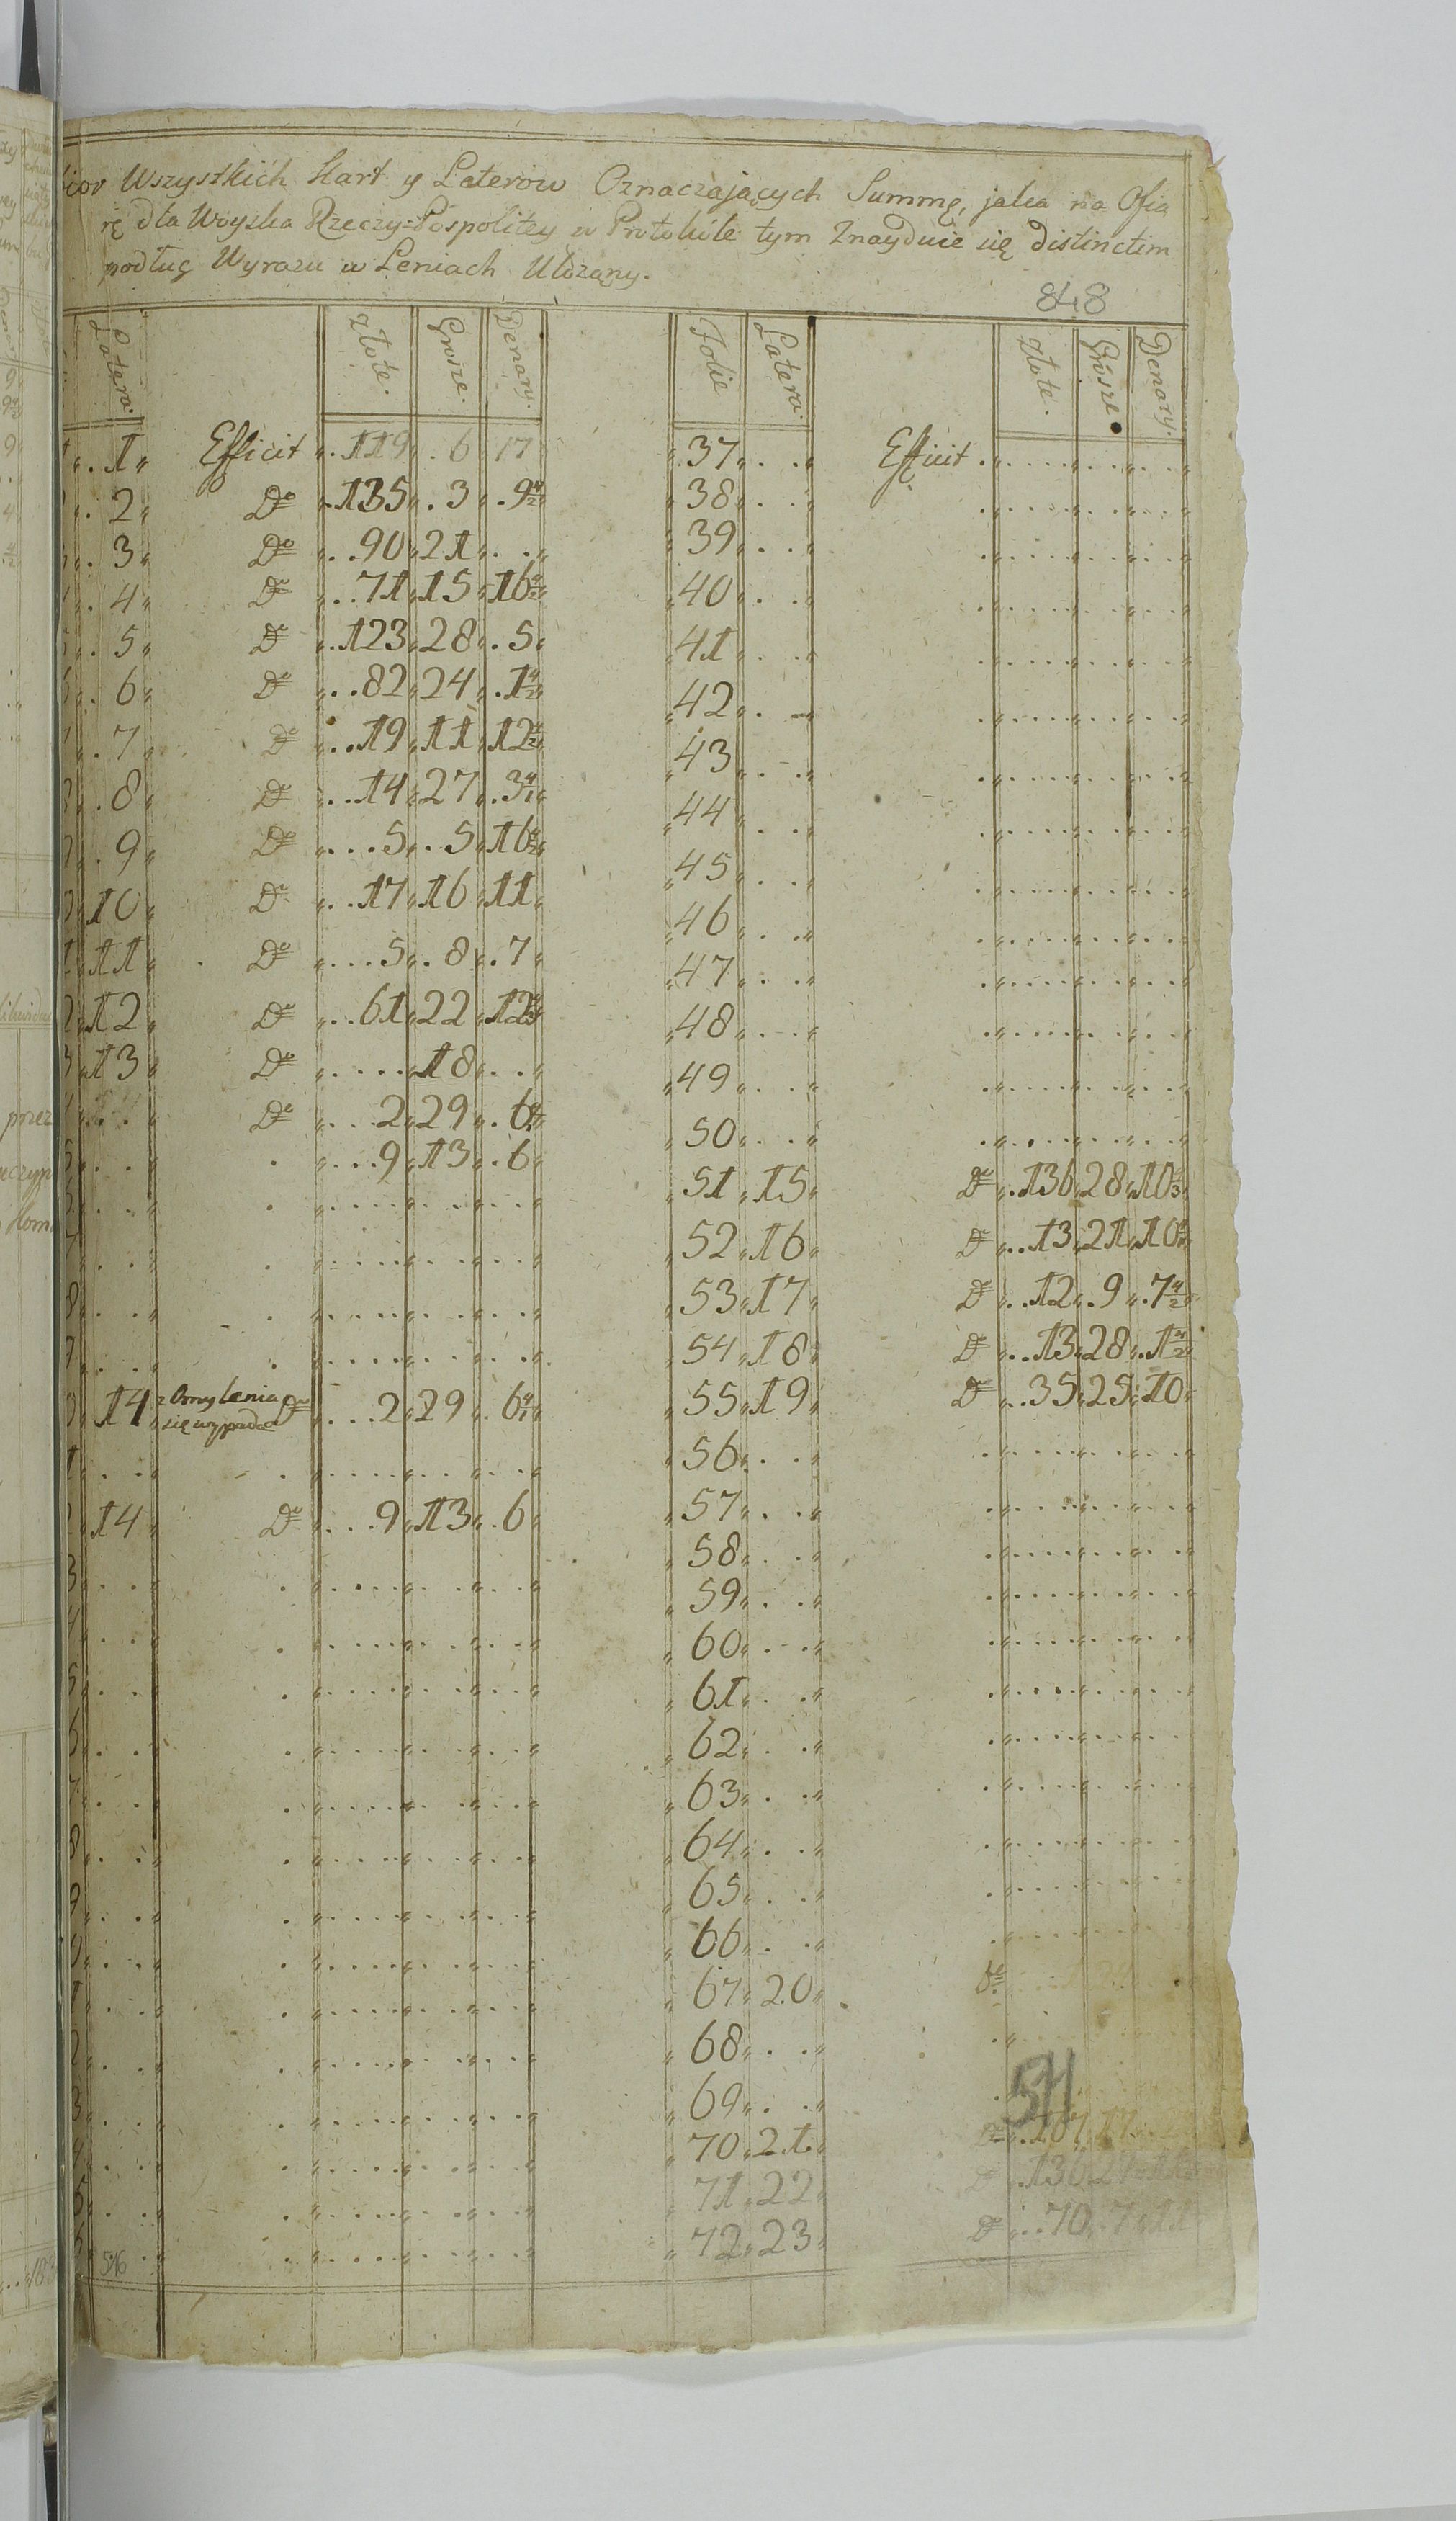 Wszystkich Kart y Laterow Oznaczających Summę, jaka na Ofia
rę dla Woyska Rzeczy-Pospolitey w Protokóle tym Znayduie się distinctim
podług Wyrazu w Leniach Ułożany.
848
Latera. Złote. Grosze. Denary. Folie Latera. Złote. Grosze Denary.
1 Efficit 119 6 17 37 Efficit
2 Do 135 3 9 1/2 38
3 Do 90 21 39
4 Do 71 15 16 1/2 40
5 Do 123 28 5 41
6 Do 82 24 1 1/2 42
7 Do 19 11 12 1/2 43
8 Do 14 27 3 44
9 Do 5 5 16 1/2 45
10 Do 17 16 11 46
11 Do 5 8 7 47
12 Do 61 22 12 48
13 Do 18 49
Do 2 29 6 50
9 13 6 51 15 Do 136 28 10 1/3
52 16 Do 13 21 10
53 17 Do 12 9 7 1/2
54 18 Do 13 28 1 1/2
14 z Omylenia się wypada Do 2 29 6 55 19 Do 35 25 10
56
14 Do 9 13 6 57
58
59
60
61
62
63
64
65
66
67 20 Do
68
69
511
70 21 Do 107 17
71 22 Do 136
72 23 Do 70 7 11
516